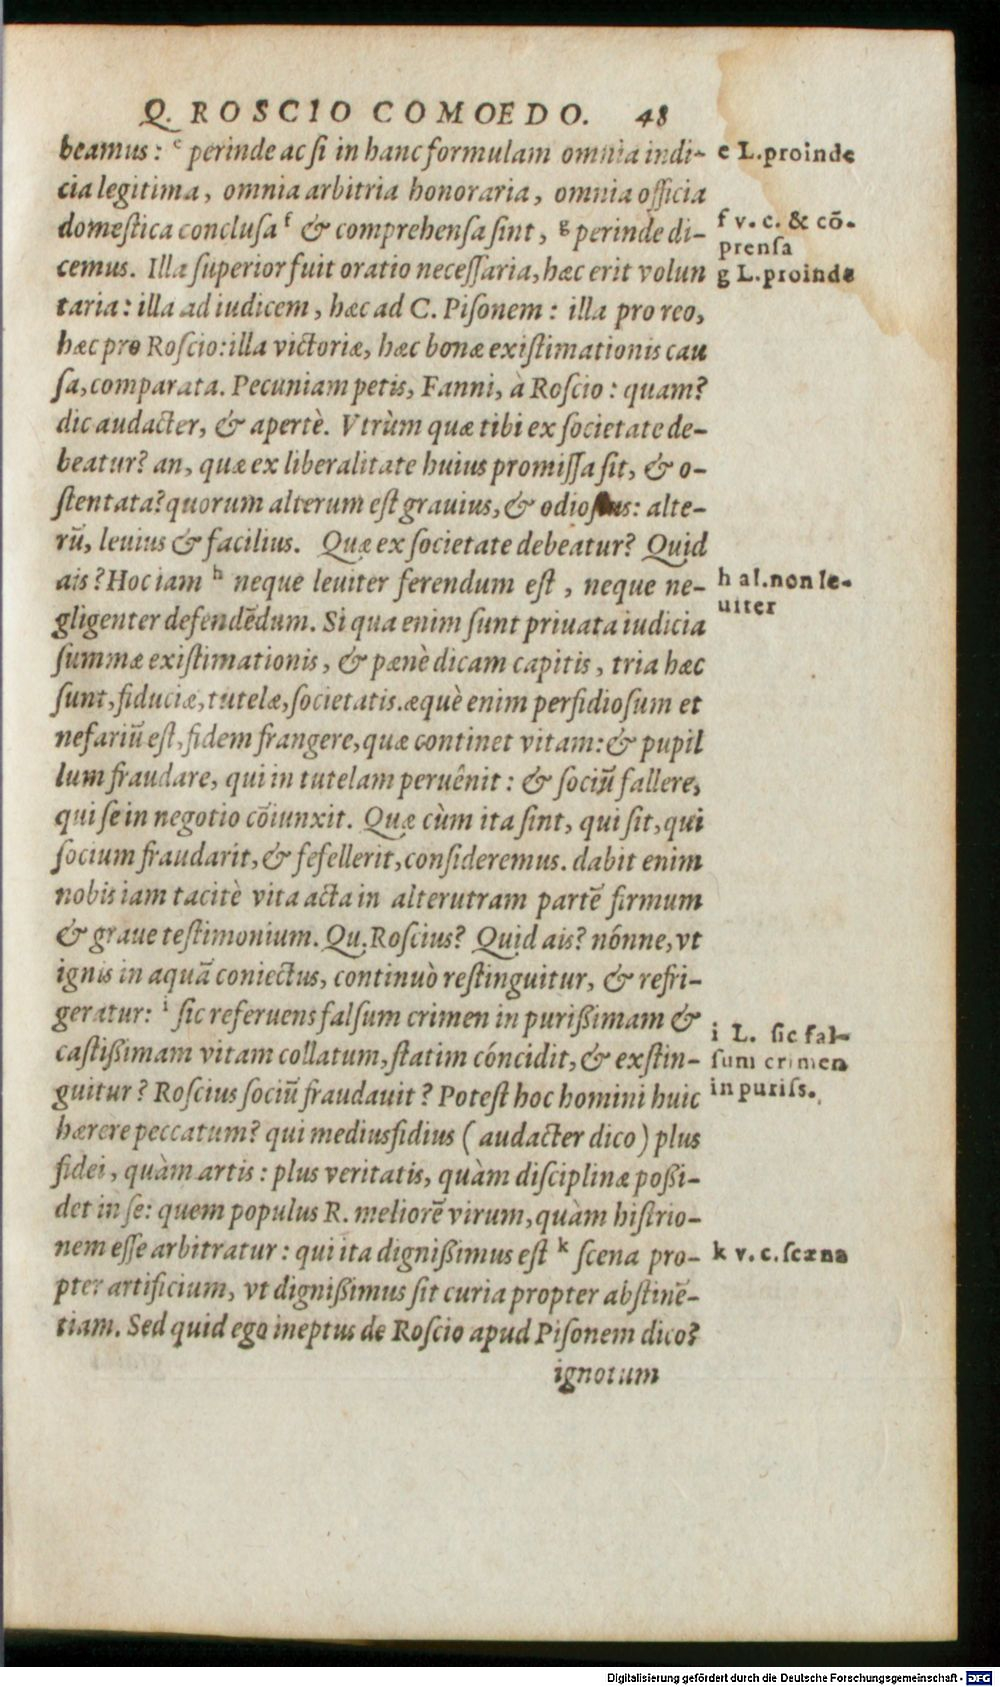 Q. ROSCIO COMOEDO. 48
beamus: ᵉ perinde ac ſi in hanc formulam omnia indi-
e L.proinde
cia legitima, omnia arbitria honoraria, omnia officia
domeſtica concluſa ᶠ & comprehenſa ſint, ᵍ perinde di-
f v. c. & cō-
prenſa
cemus. Illa ſuperior fuit oratio neceſſaria, hæc erit volun
g L.proinde
taria: illa ad iudicem, hæc ad C. Piſonem: illa pro reo,
hæc pro Roſcio: illa victoriæ, hæc bonæ exiſtimationis cau
ſa, comparata. Pecuniam petis, Fanni, à Roſcio: quam?
dic audacter, & apertè. Vtrùm quæ tibi ex ſocietate de-
beatur? an, quæ ex liberalitate huius promiſſa ſit, & o-
ſtentata? quorum alterum eſt grauius, & odioſius: alte-
rũ, leuius & facilius. Quæ ex ſocietate debeatur? Quid
ais? Hoc iam ʰ neque leuiter ferendum eſt, neque ne-
h al.non le-
uiter
gligenter defendẽdum. Si qua enim ſunt priuata iudicia
ſummæ exiſtimationis, & pænè dicam capitis, tria hæc
ſunt, fiduciæ, tutelæ, ſocietatis. æquè enim perfidioſum et
nefariũ eſt, fidem frangere, quæ continet vitam: & pupil
lum fraudare, qui in tutelam peruênit: & ſociũ fallere,
qui ſe in negotio cõiunxit. Quæ cùm ita ſint, qui ſit, qui
ſocium fraudarit, & fefellerit, conſideremus. dabit enim
nobis iam tacitè vita acta in alterutram partẽ firmum
& graue teſtimonium. Qu. Roſcius? Quid ais? nónne, vt
ignis in aquã coniectus, continuò reſtinguitur, & refri-
geratur: ⁱ ſic referuens falſum crimen in purißimam &
i L. ſic fal-
ſum crimen
in puriſs.
caſtißimam vitam collatum, ſtatim cóncidit, & exſtin-
guitur? Roſcius ſociũ fraudauit? Poteſt hoc homini huic
hærere peccatum? qui mediusfidius (audacter dico) plus
fidei, quàm artis: plus veritatis, quàm diſciplinæ poßi-
det in ſe: quem populus R. meliorẽ virum, quàm hiſtrio-
nem eſſe arbitratur: qui ita dignißimus eſt ᵏ ſcena pro-
k v. c. ſcæna
pter artificium, vt dignißimus ſit curia propter abſtinẽ-
tiam. Sed quid ego ineptus de Roſcio apud Piſonem dico?
ignotum
Digitalisierung gefördert durch die Deutsche Forschungsgemeinschaft - DFG